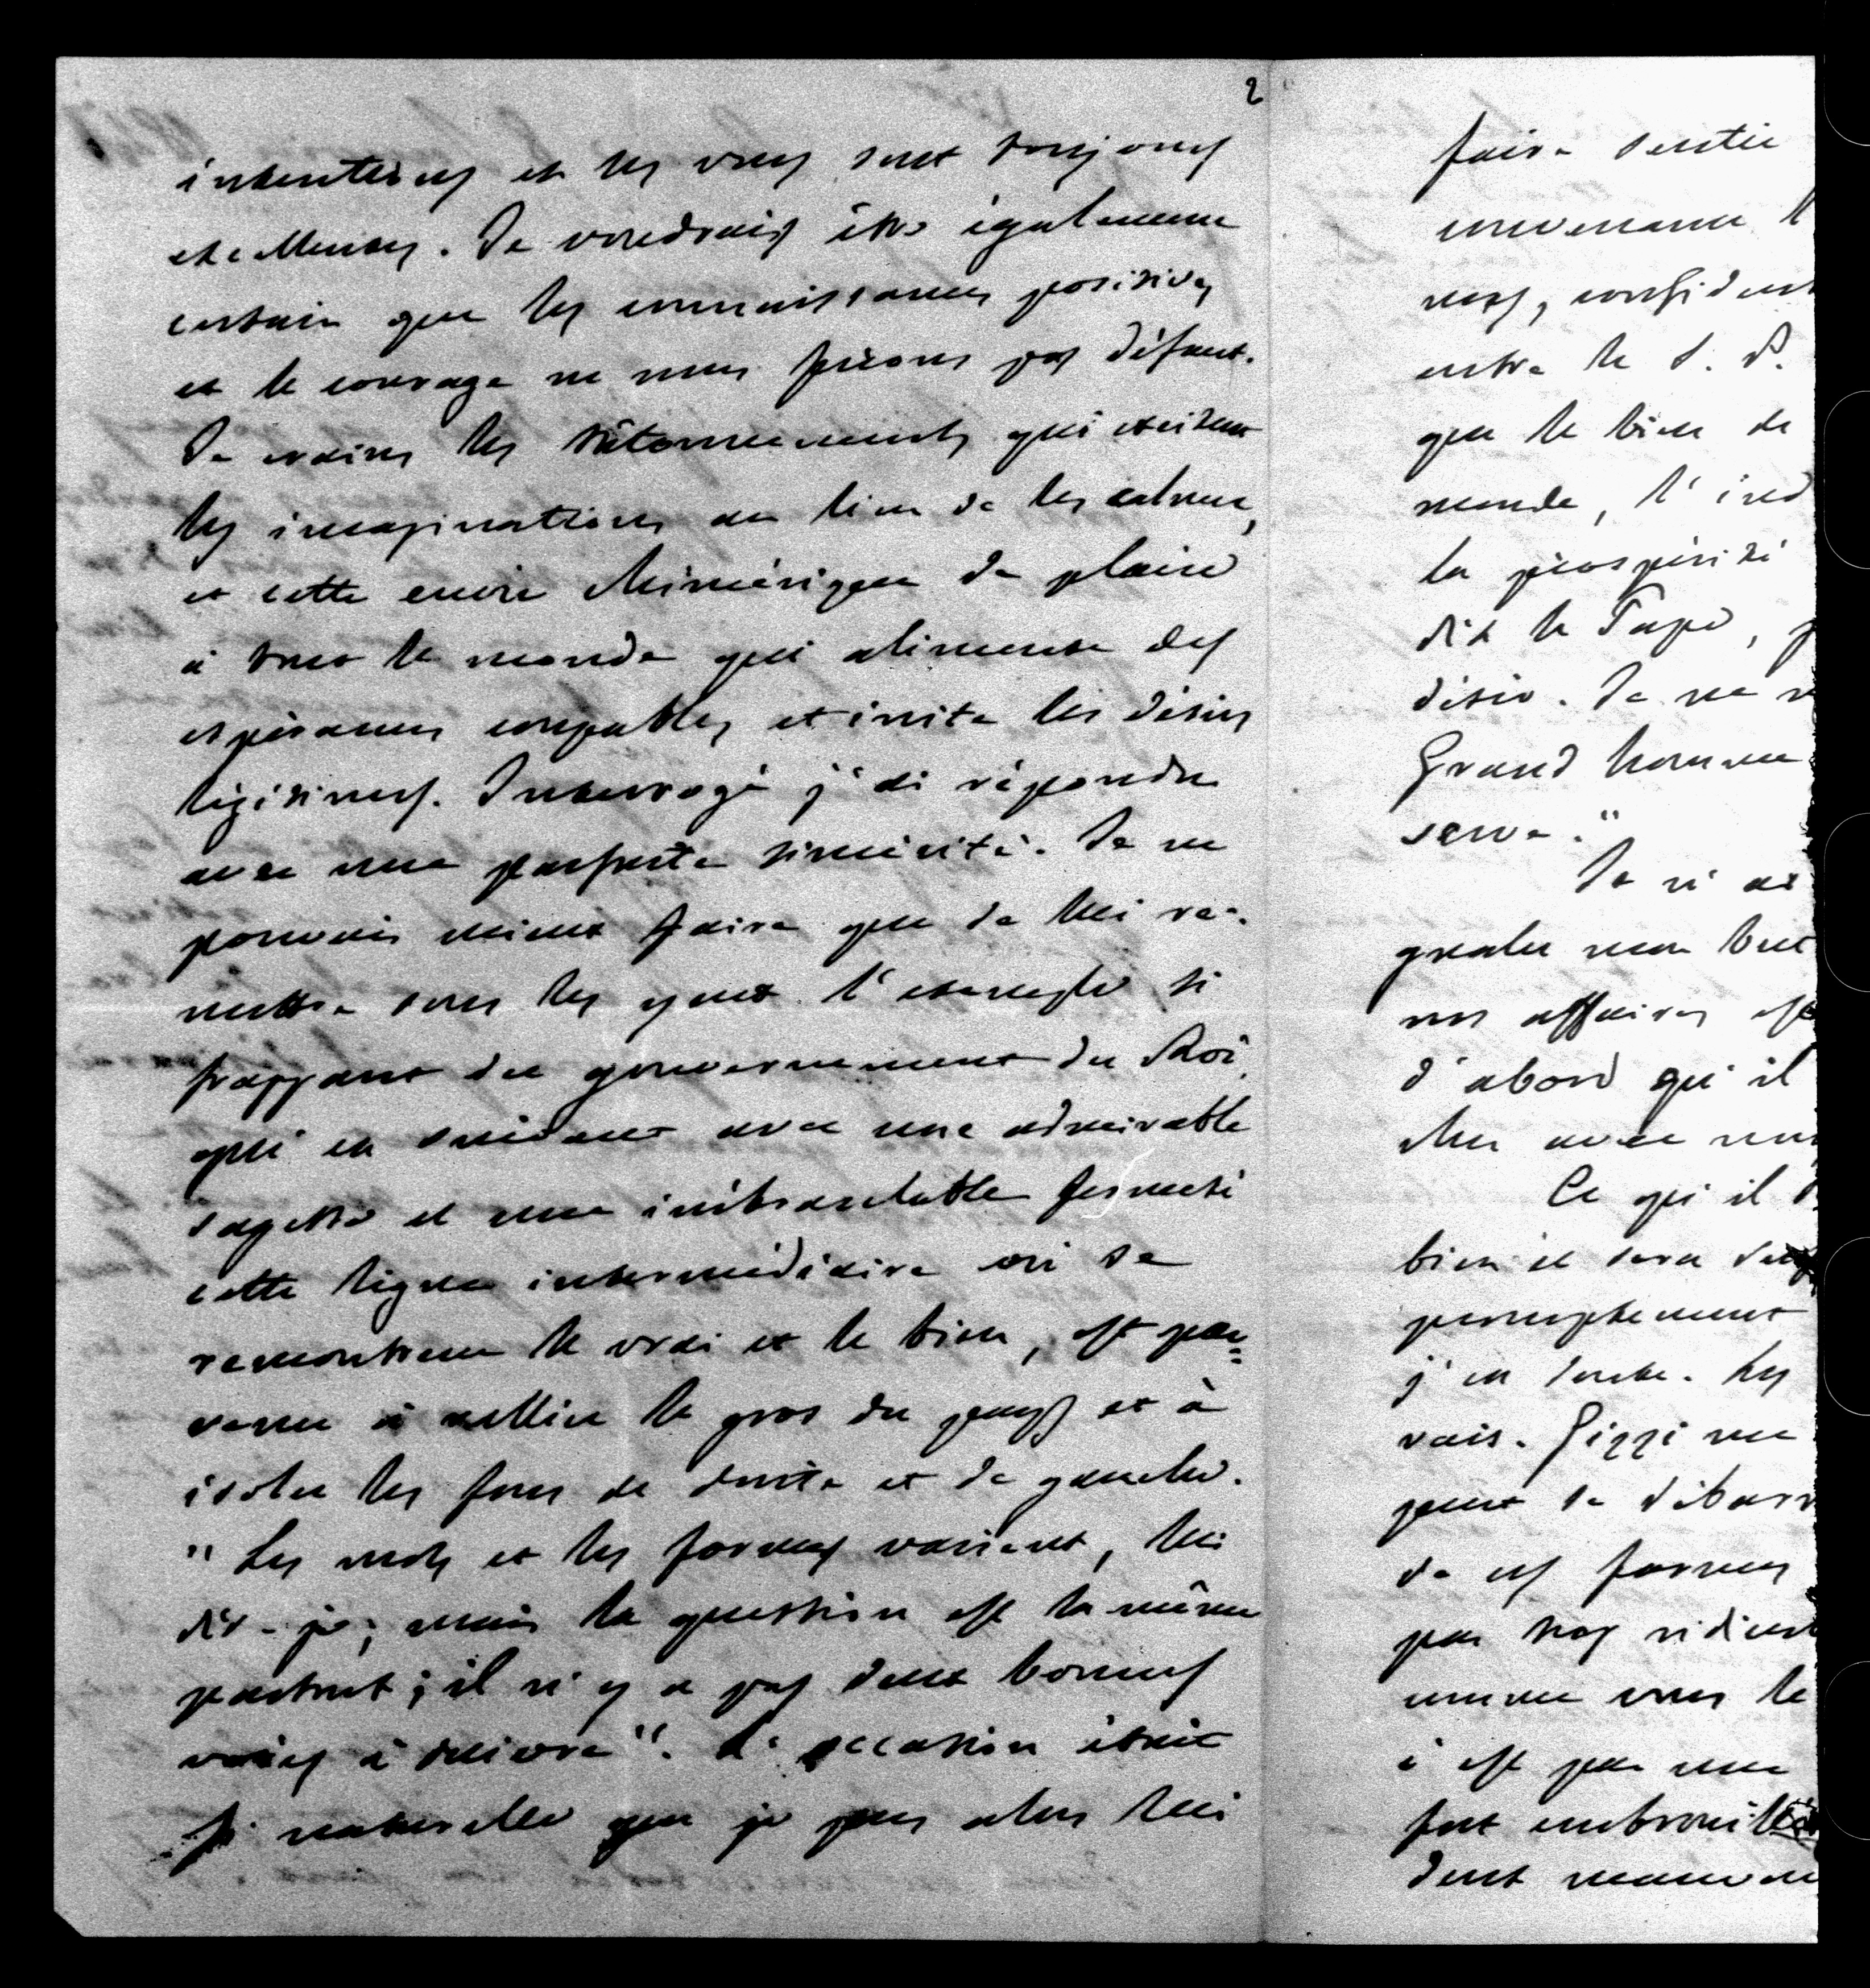 2
intentions et les vues sont toujours
excellentes. Je voudrais être également
certain que les connaissances positives
et le courage ne nous feront pas défaut.
Je crains les tâtonnements qui excitent
les imaginations au lieu de les calmer,
et cette envie chimérique de plaire
à tout le monde qui alimente des
espérances coupables et irrite les désirs
légitimes. Interrogé j'ai répondu
avec une parfaite sincérité. Je ne
pouvais mieux faire que de lui re-
mettre sous les yeux l'exemple si
frappant du gouvernement du Roi,
qui en suivant avec une admirable
sagesse et une inébranlable fermeté
cette ligne intermédiaire où se
rencontrent le vrai et le bien, est par=
venu à rallier le gros du pays et à
isoler les fous de droite et de gauche.
"Les mots et les formes varient, lui
dis-je; mais la question est la même
partout; il n'y a pas deux bonnes
voies à suivre". L'occasion était
si naturelle que je pus alors lui
faire sentir
convenance
nos, confident
entre le S. P.
que le bien de
monde, l'ind
la prospérité
dit le Pape,
désir. Je ne
Grand homme
serve."
Je n'ai
gueler mon but
nos affaires est
d'abord qu'il
cher avec
Ce qu'il
bien et sera
promptement
j'en doute. Les
vais. Gizzi me
peut se débarr
de ces formes
pas trop ridicul
comme vous le
c'est par une
fort embrouillé
dont mauvai